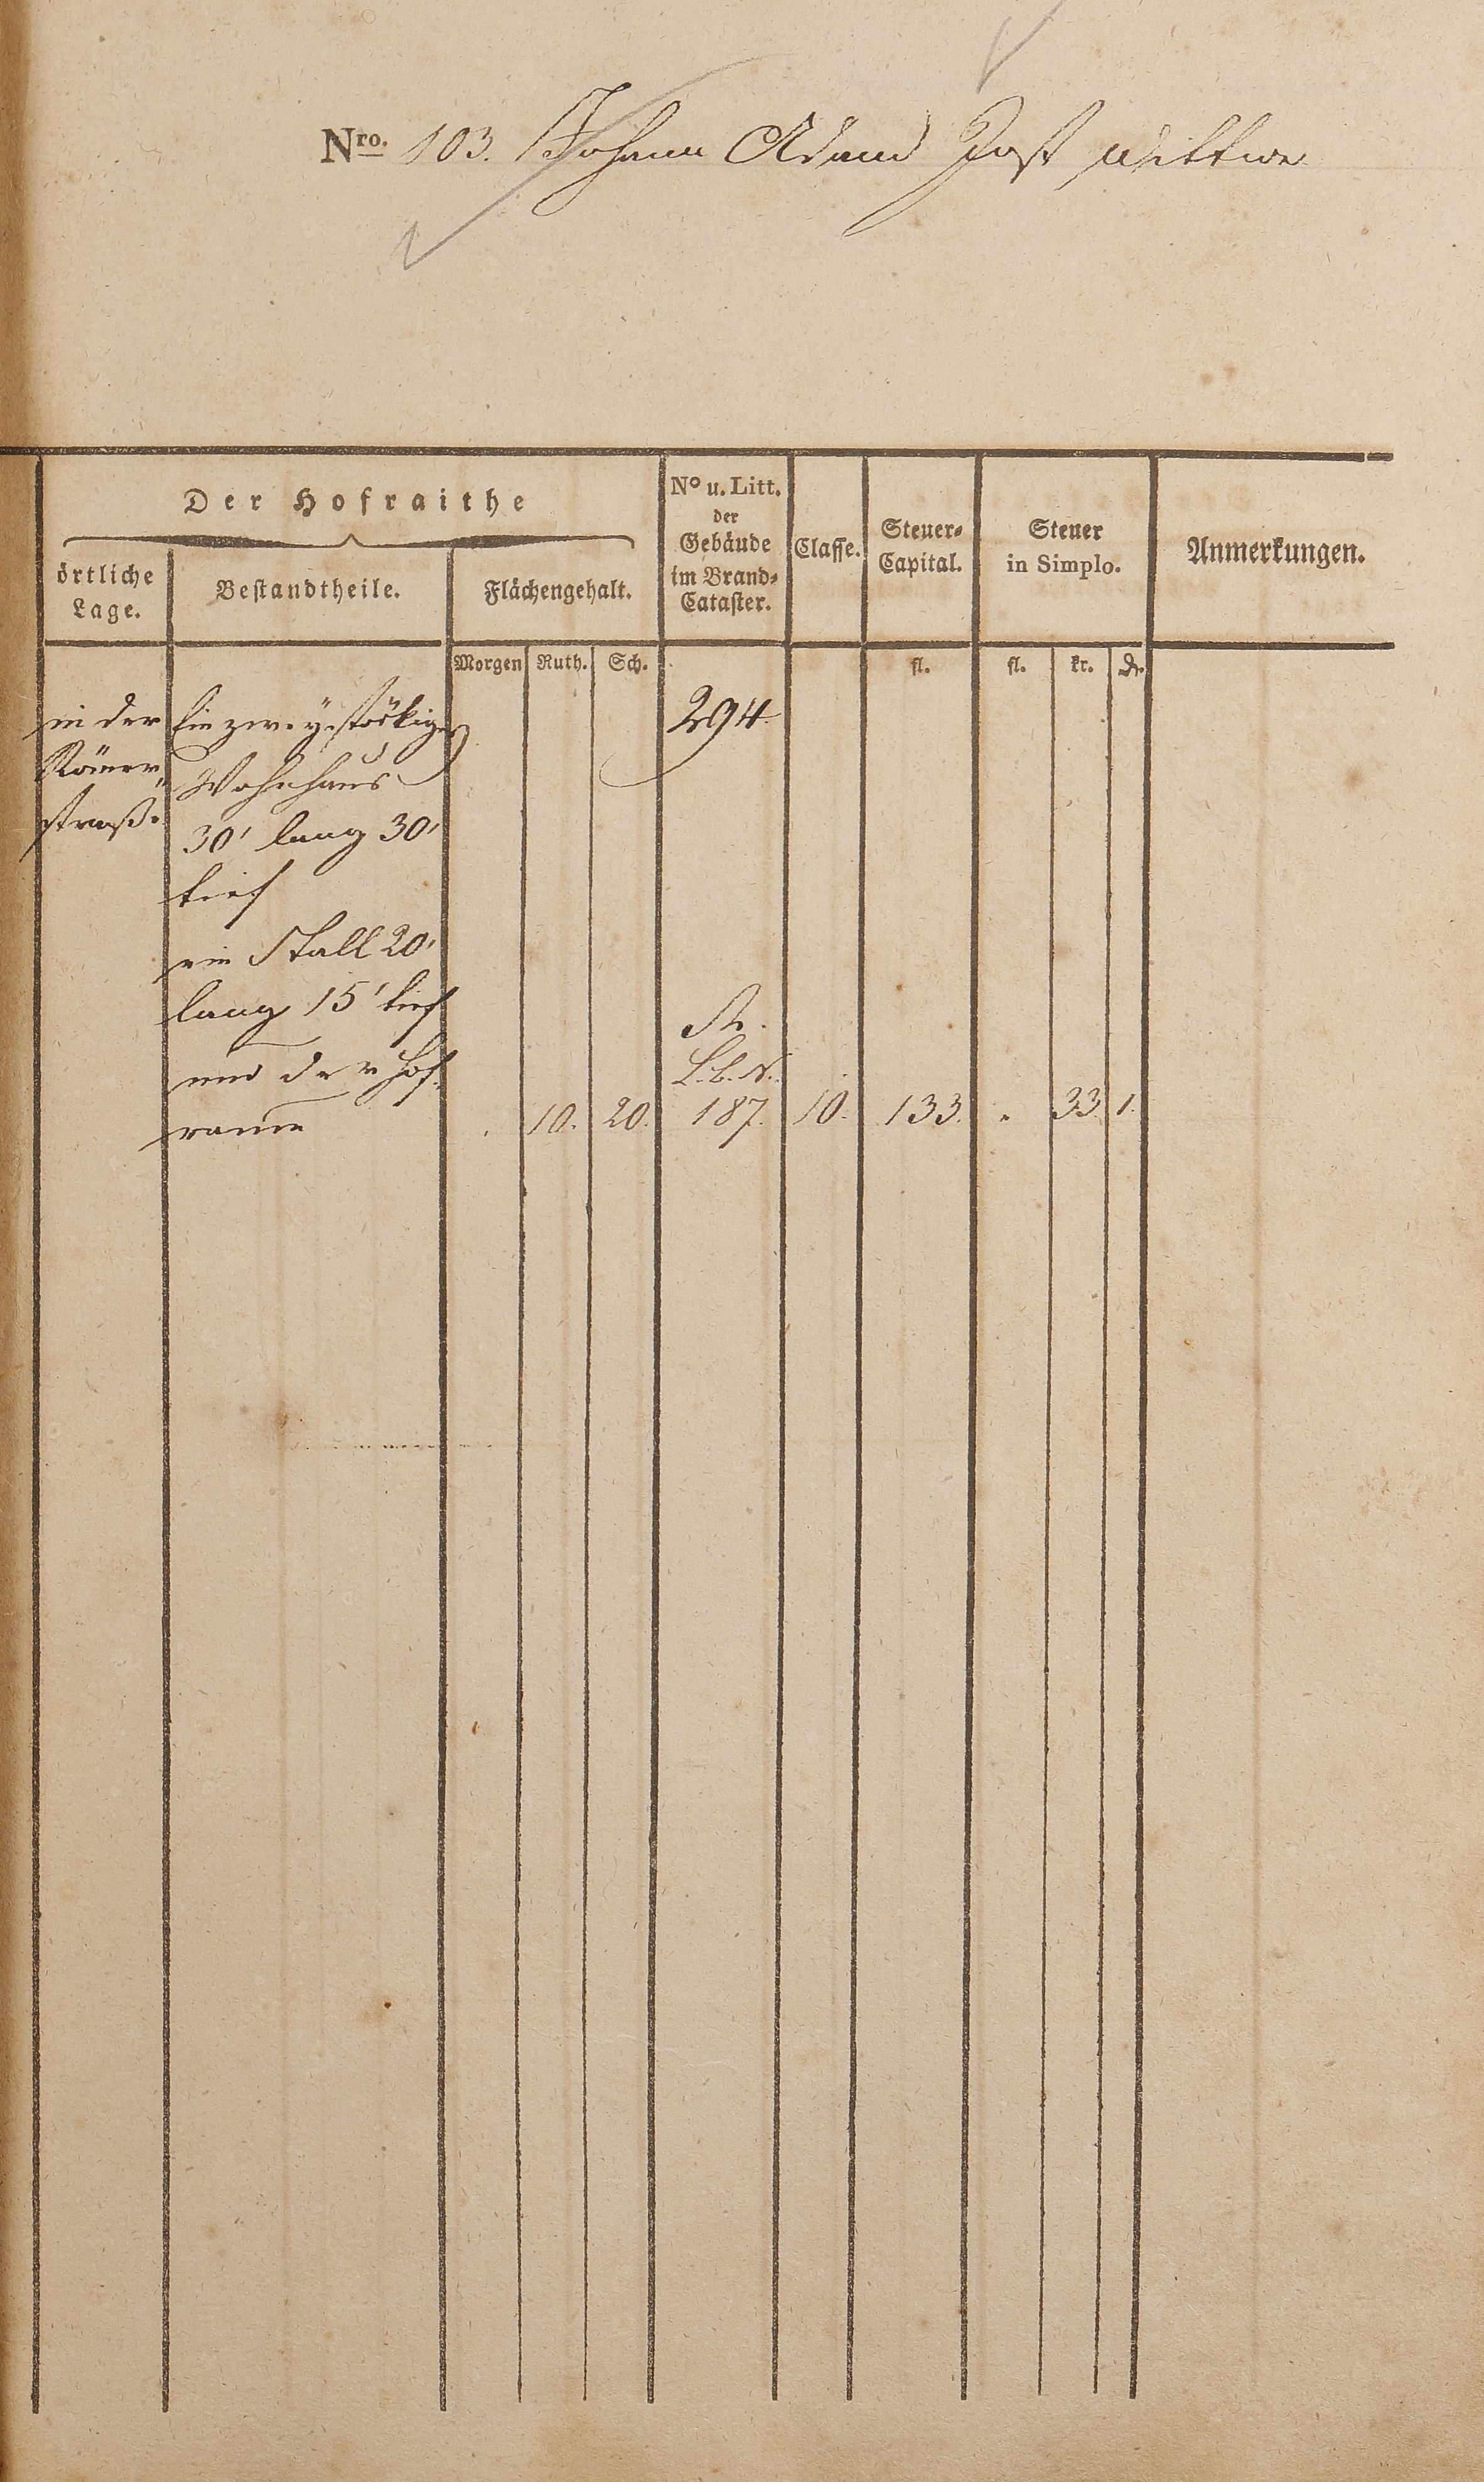 Nro. 103. Johann Adam Jost Wittwe
Der Hofraithe
örtliche Lage.
Bestandtheile.
Flächengehalt.
No u. Litt. der Gebäude im Brand-Cataster.
Classe.
Steuer-Capital.
Steuer in Simplo.
Anmerkungen.
Morgen Ruth. Sch. fl. fl. kr. d.
in der Ein zweystöckiges 294
Römer Wohnhaus
straße 30' lang 30'
tief
ein Stall 20'
lang 15' tief
und der Hof- L.b.N.
raum . 10. 20. 187. 10. 133. . 33 1.